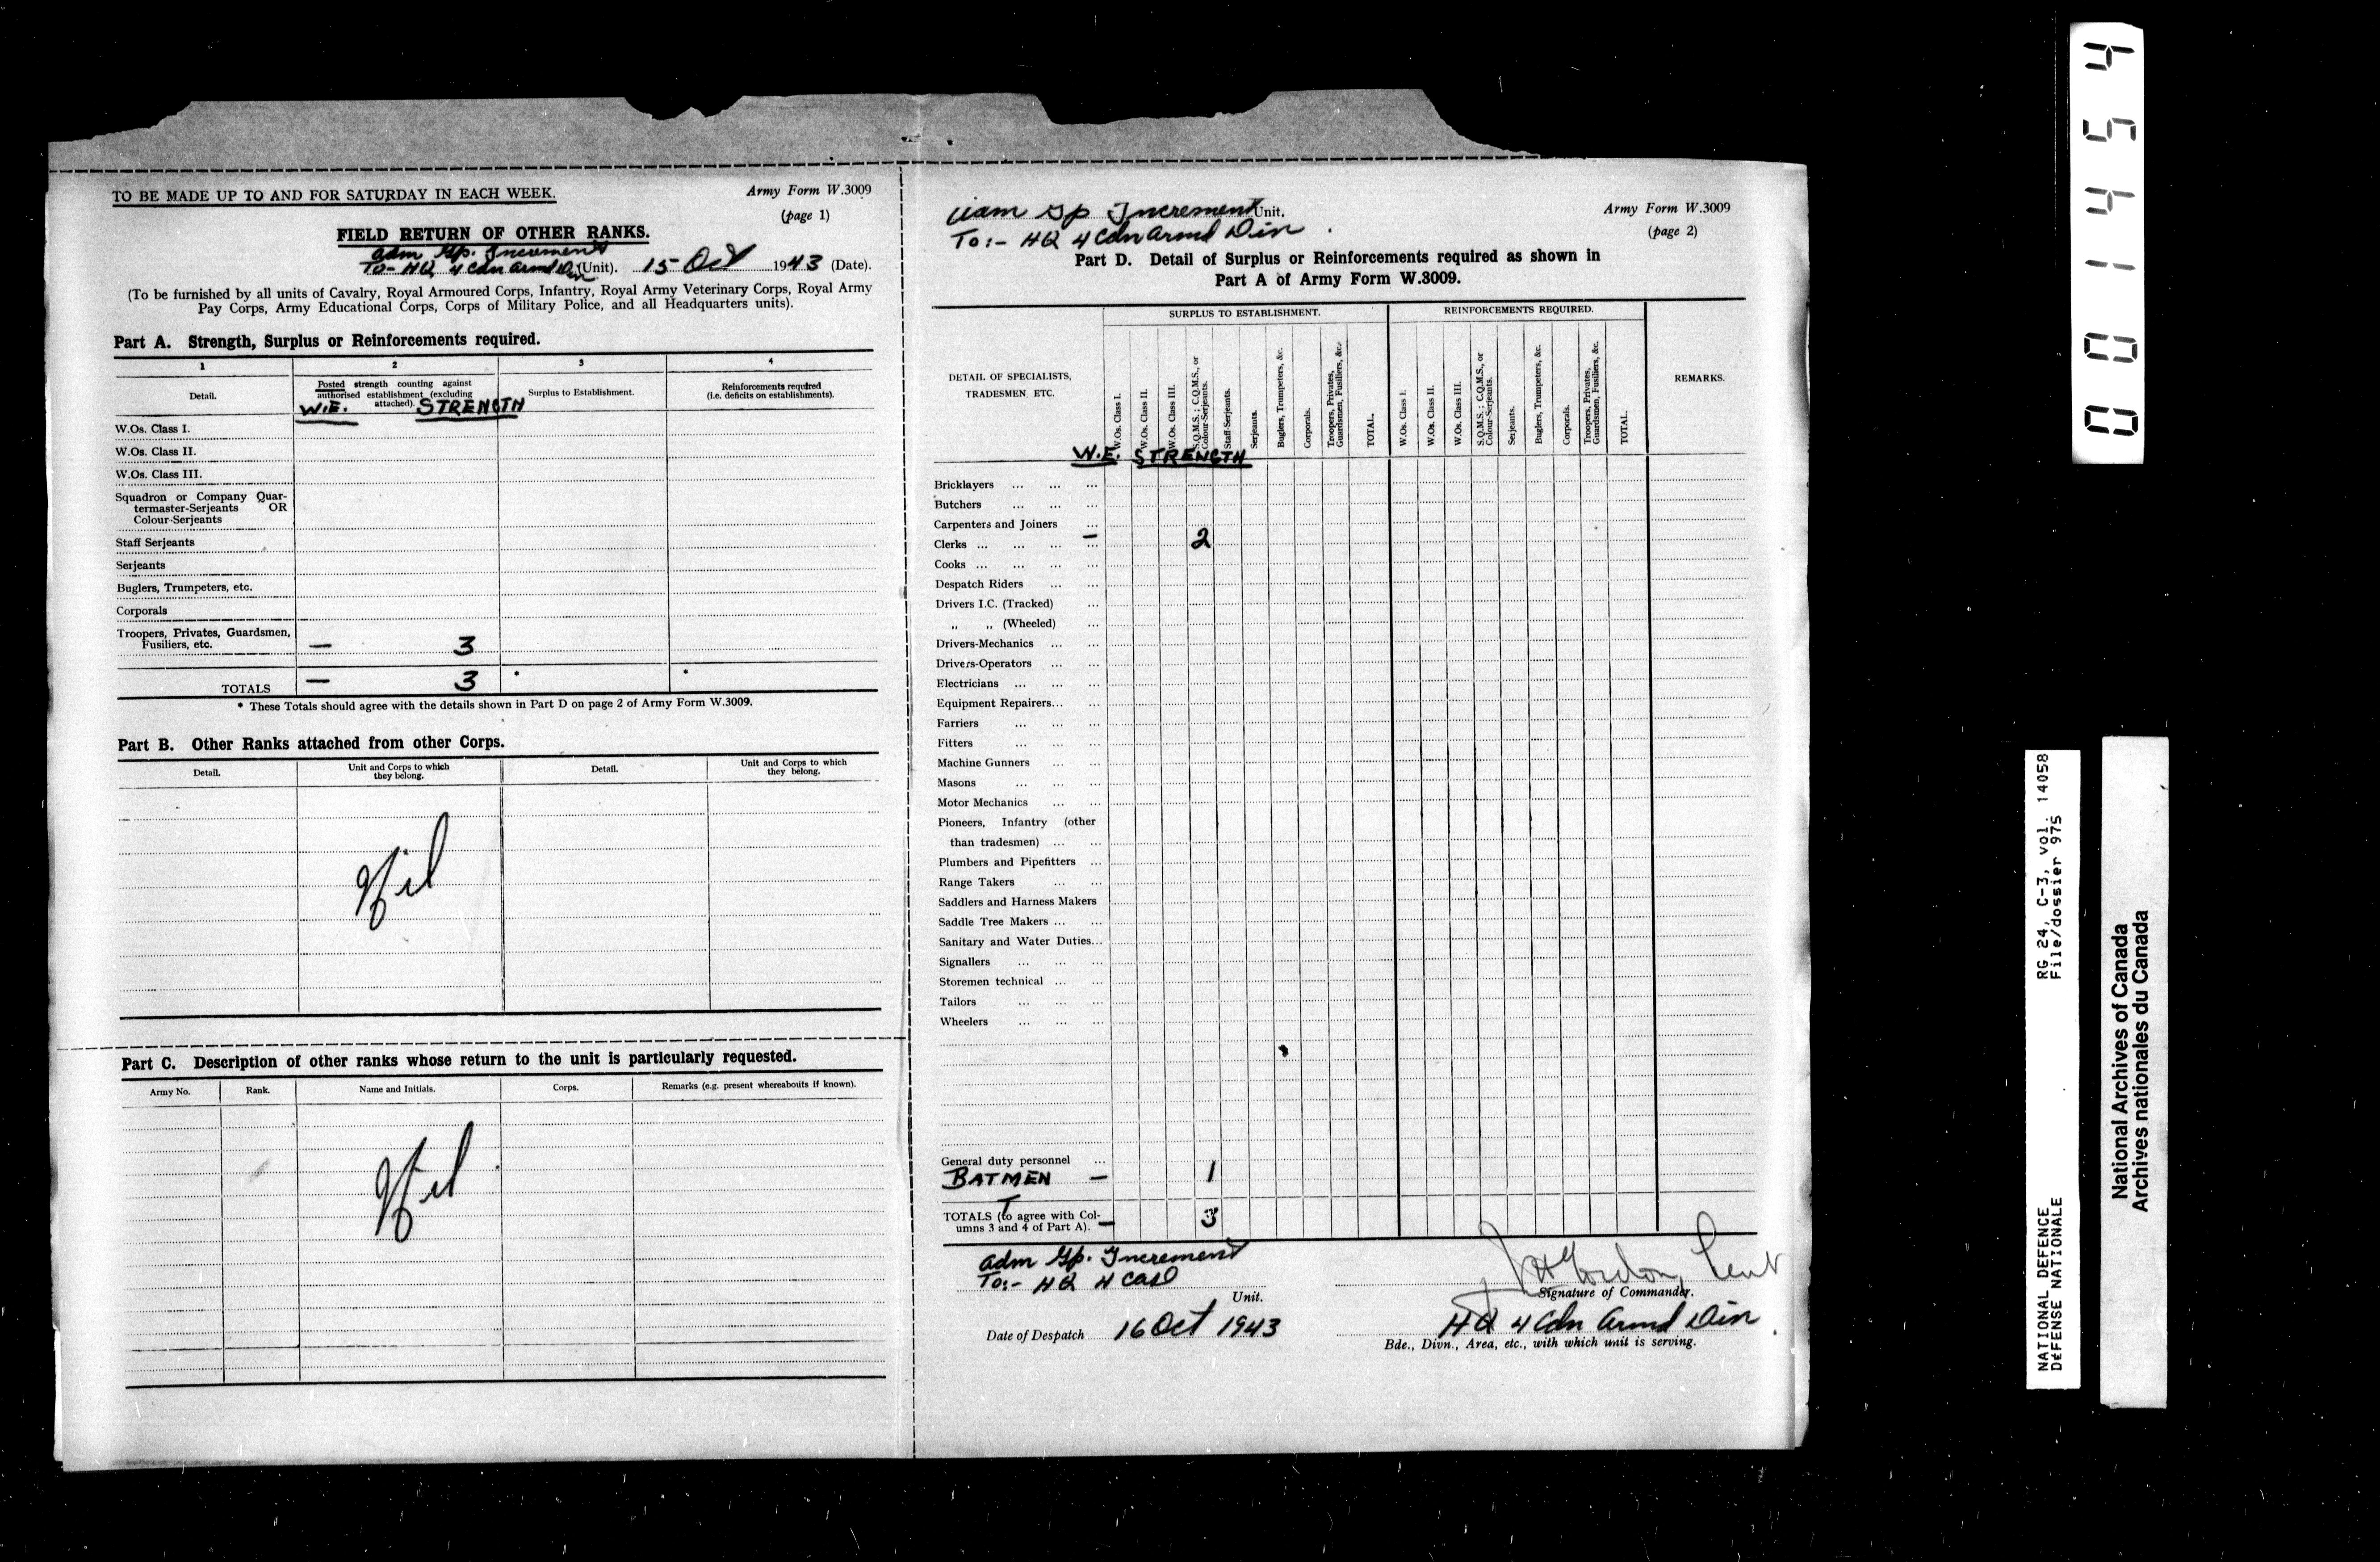 TO BE MADE UP TO AND FOR SATURDAY IN EACH WEEK.
Army Form W.3009
(page 1)
FIELD RETURN OF OTHER RANKS.
Adm Gp. Increment
To- HQ 4 Cdn Armd Div (Unit). 15 Oct 1943 (Date).
(To be furnished by all units of Cavalry, Royal Armoured Corps, Infantry, Royal Army Veterinary Corps, Royal Army
Pay Corps, Army Educational Corps, Corps of Military Police, and all Headquarters units).
Part A. Strength, Surplus or Reinforcements required.
1 2 3 4
Detail.
Posted strength counting against
authorised establishment (excluding
attached).
W.E. STRENGTH
Surplus to Establishment.
Reinforcements required
(i.e. deficits on establishments).
W.Os. Class I.
W.Os. Class II.
W.Os. Class III.
Squadron or Company Quar-
termaster-Serjeants OR
Colour-Serjeants
Staff Serjeants
Serjeants
Buglers, Trumpeters, etc.
Corporals
Troopers, Privates, Guardsmen,
Fusiliers, etc. — 3
TOTALS — 3 * *
* These Totals should agree with the details shown in Part D on page 2 of Army Form W.3009.
Part B. Other Ranks attached from other Corps.
Detail. Unit and Corps to which
they belong. Detail. Unit and Corps to which
they belong.
Nil
Part C. Description of other ranks whose return to the unit is particularly requested.
Army No. Rank. Name and Initials. Corps. Remarks (e.g. present whereabouts if known).
Nil
Adm Gp Increment Unit.
To:- HQ 4 Cdn Armd Div
Army Form W.3009
(page 2)
Part D. Detail of Surplus or Reinforcements required as shown in
Part A of Army Form W.3009.
DETAIL OF SPECIALISTS,
TRADESMEN, ETC.
SURPLUS TO ESTABLISHMENT.
W.Os. Class I.
W.Os. Class II.
W.Os. Class III.
S.Q.M.S.; C.Q.M.S., or
Colour-Serjeants.
Staff-Serjeants.
Serjeants.
Buglers, Trumpeters, &c.
Corporals.
Troopers, Privates,
Guardsmen, Fusiliers, &c.
TOTAL.
REINFORCEMENTS REQUIRED.
W.Os. Class I.
W.Os. Class II.
W.Os. Class III.
S.Q.M.S.; C.Q.M.S., or
Colour-Serjeants.
Serjeants.
Buglers, Trumpeters, &c.
Corporals.
Troopers, Privates,
Guardsmen, Fusiliers, &c.
TOTAL.
REMARKS.
W.E. STRENGTH
Bricklayers ... ... ...
Butchers ... ... ...
Carpenters and Joiners ...
Clerks ... ... ... ... — 2
Cooks ... ... ... ...
Despatch Riders ... ...
Drivers I.C. (Tracked) ...
„ „ (Wheeled) ...
Drivers-Mechanics ... ...
Drivers-Operators ... ...
Electricians ... ... ...
Equipment Repairers... ...
Farriers ... ... ...
Fitters ... ... ...
Machine Gunners ... ...
Masons ... ... ...
Motor Mechanics ... ...
Pioneers, Infantry (other
than tradesmen) ... ...
Plumbers and Pipefitters ...
Range Takers ... ...
Saddlers and Harness Makers
Saddle Tree Makers ... ...
Sanitary and Water Duties...
Signallers ... ... ...
Storemen technical ... ...
Tailors ... ... ...
Wheelers ... ... ...
General duty personnel ...
BATMEN — 1
TOTALS (to agree with Col-
umns 3 and 4 of Part A). — 3
Adm Gp. Increment
To:- HQ 4 CAD
Unit.
Gordon, Lieut
Signature of Commander.
Date of Despatch 16 Oct 1943
HQ 4 Cdn Armd Div
Bde., Divn., Area, etc., with which unit is serving.
001454
RG 24, C-3, vol. 14058
File/dossier 975
NATIONAL DEFENCE
DÉFENSE NATIONALE
National Archives of Canada
Archives nationales du Canada